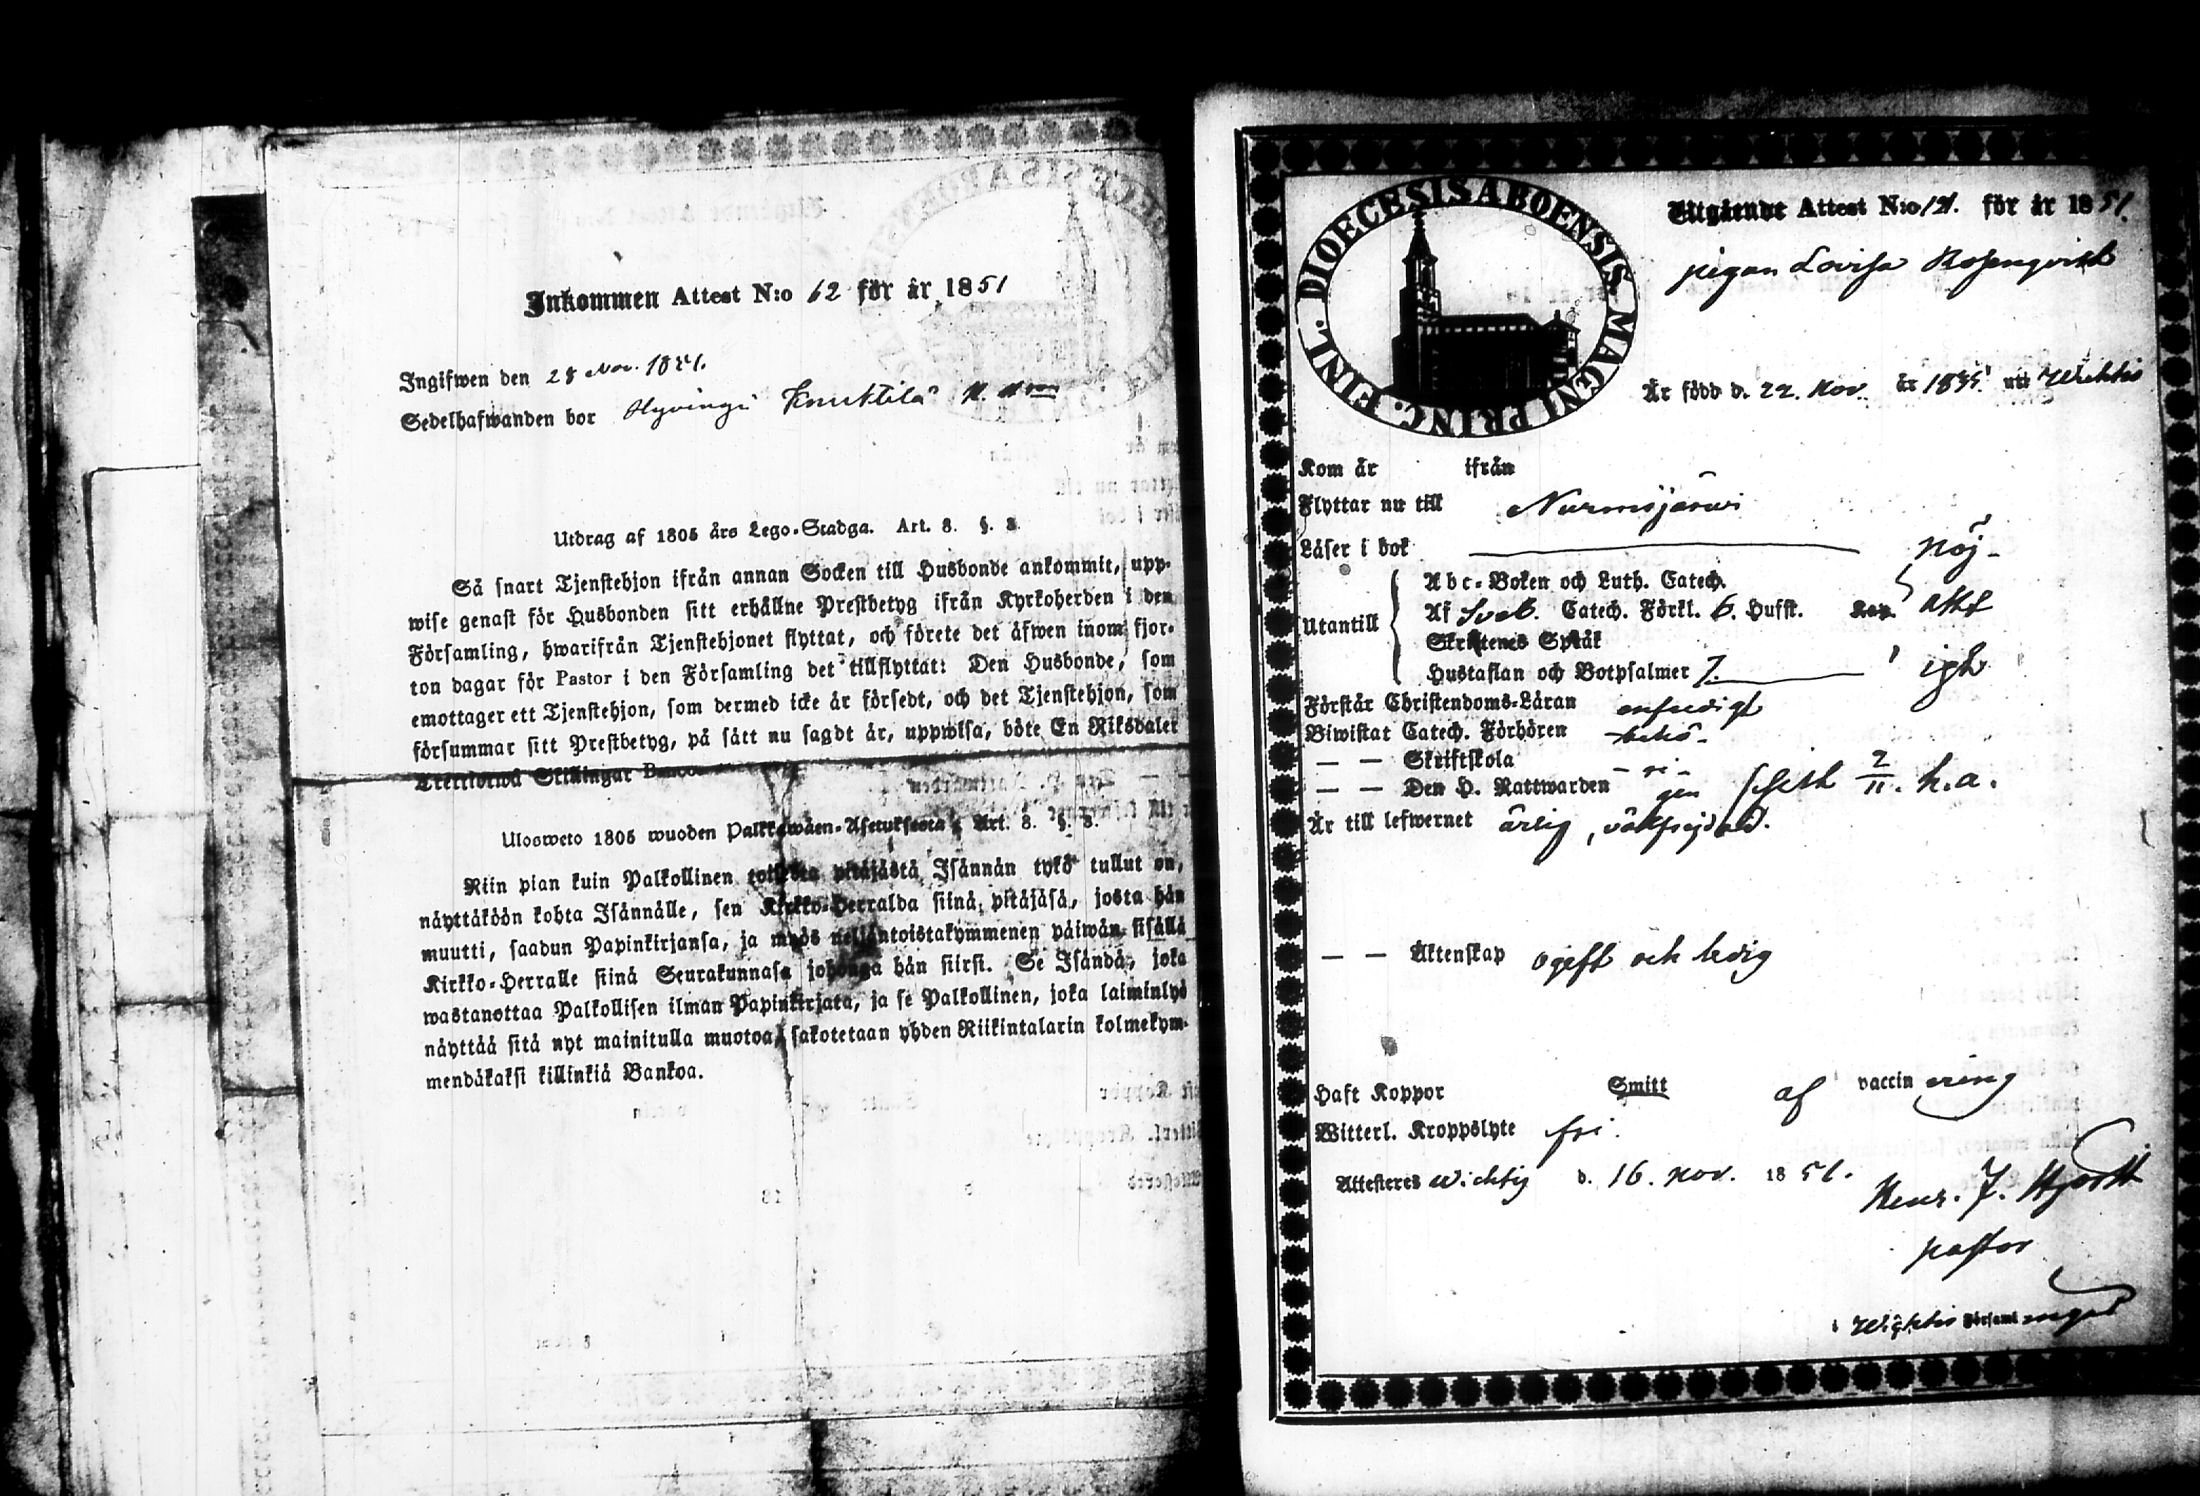 Inkommen Attest N:o 62 för år 1851
Ingifwen den 28 Nov. 1851.
Sedelhafwanden bor Hyvinge Knuktila
Utdrag af 1805 års Lego-Stadga. Art. 8. §. 3.
Så snart Tjenstehjon ifrån annan Socken till Husbonde ankommit, upp-
wise genast för Husbonden sitt erhållne Prestbetyg ifrån Kyrkoherden i den
Församling, hwarifrån Tjenstehjonet flyttat, och förete det äfwen inom fjor-
ton dagar för Pastor i den Församling det tillflyttat: Den Husbonde, som
emottager ett Tjenstehjon, som dermed icke är försedt, och det Tjenstehjon, som
försummar sitt Prestbetyg, på sätt nu sagdt är, uppwisa, böte En Riksdaler
Trettiotwå Skillingar Banco
Ulosweto 1805 wuoden Palkkawäen-Asetuksesta, Art. 8. §. 3.
Niin pian kuin Palkollinen toisesta pitäjästä Isännän tykö tullut on,
näyttäköön kohta Isännälle, sen Kirkko-Herralda siinä pitäjäsä, josta hän
muutti, saadun Papinkirjansa, ja myös neljäntoistakymmenen päiwän sisällä
Kirkko-Herralle siinä Seurakunnasa johonga hän siirsi. Se Isändä, joka
wastanottaa Palkollisen ilman Papinkirjata, ja se Palkollinen, joka laiminlyö
näyttää sitä nyt mainitulla muotoa, sakotetaan yhden Riikintalarin kolmekym-
mendäkaksi killinkiä Bankoa.
DIOECESIS ABOENSIS MAGNI PRINC. FINL.
Utgående Attest N:o 121. för år 1851.
pigan Lovisa Rosenqvist
Är född d. 22. Nov. år 1835. uti Wichtis
Kom år ifrån
Flyttar nu till Nurmijärvi
Läser i bok nöj-
Abc-Boken och Luth. Catech.
Utantill Af Sveb. Catech. Förkl. 6. Hufst. Kap.
Skriftenes Språk
Hustaflan och Botpsalmer 7.
Förstår Christendoms-Läran
Biwistat Catech. Förhören
— — Skriftskola
— — Den H. Nattwarden 2/11. h.a.
Är till lefwernet ärlig, välfrejdad.
— — Äktenskap ogift och ledig
Haft Koppor Smitt af vaccinering
Witterl. Kroppslyte fri.
Attesteres Wichtis d. 16. Nov. 1851.
Henr. J. Hjorth
pastor
i Wichtis Församlingar